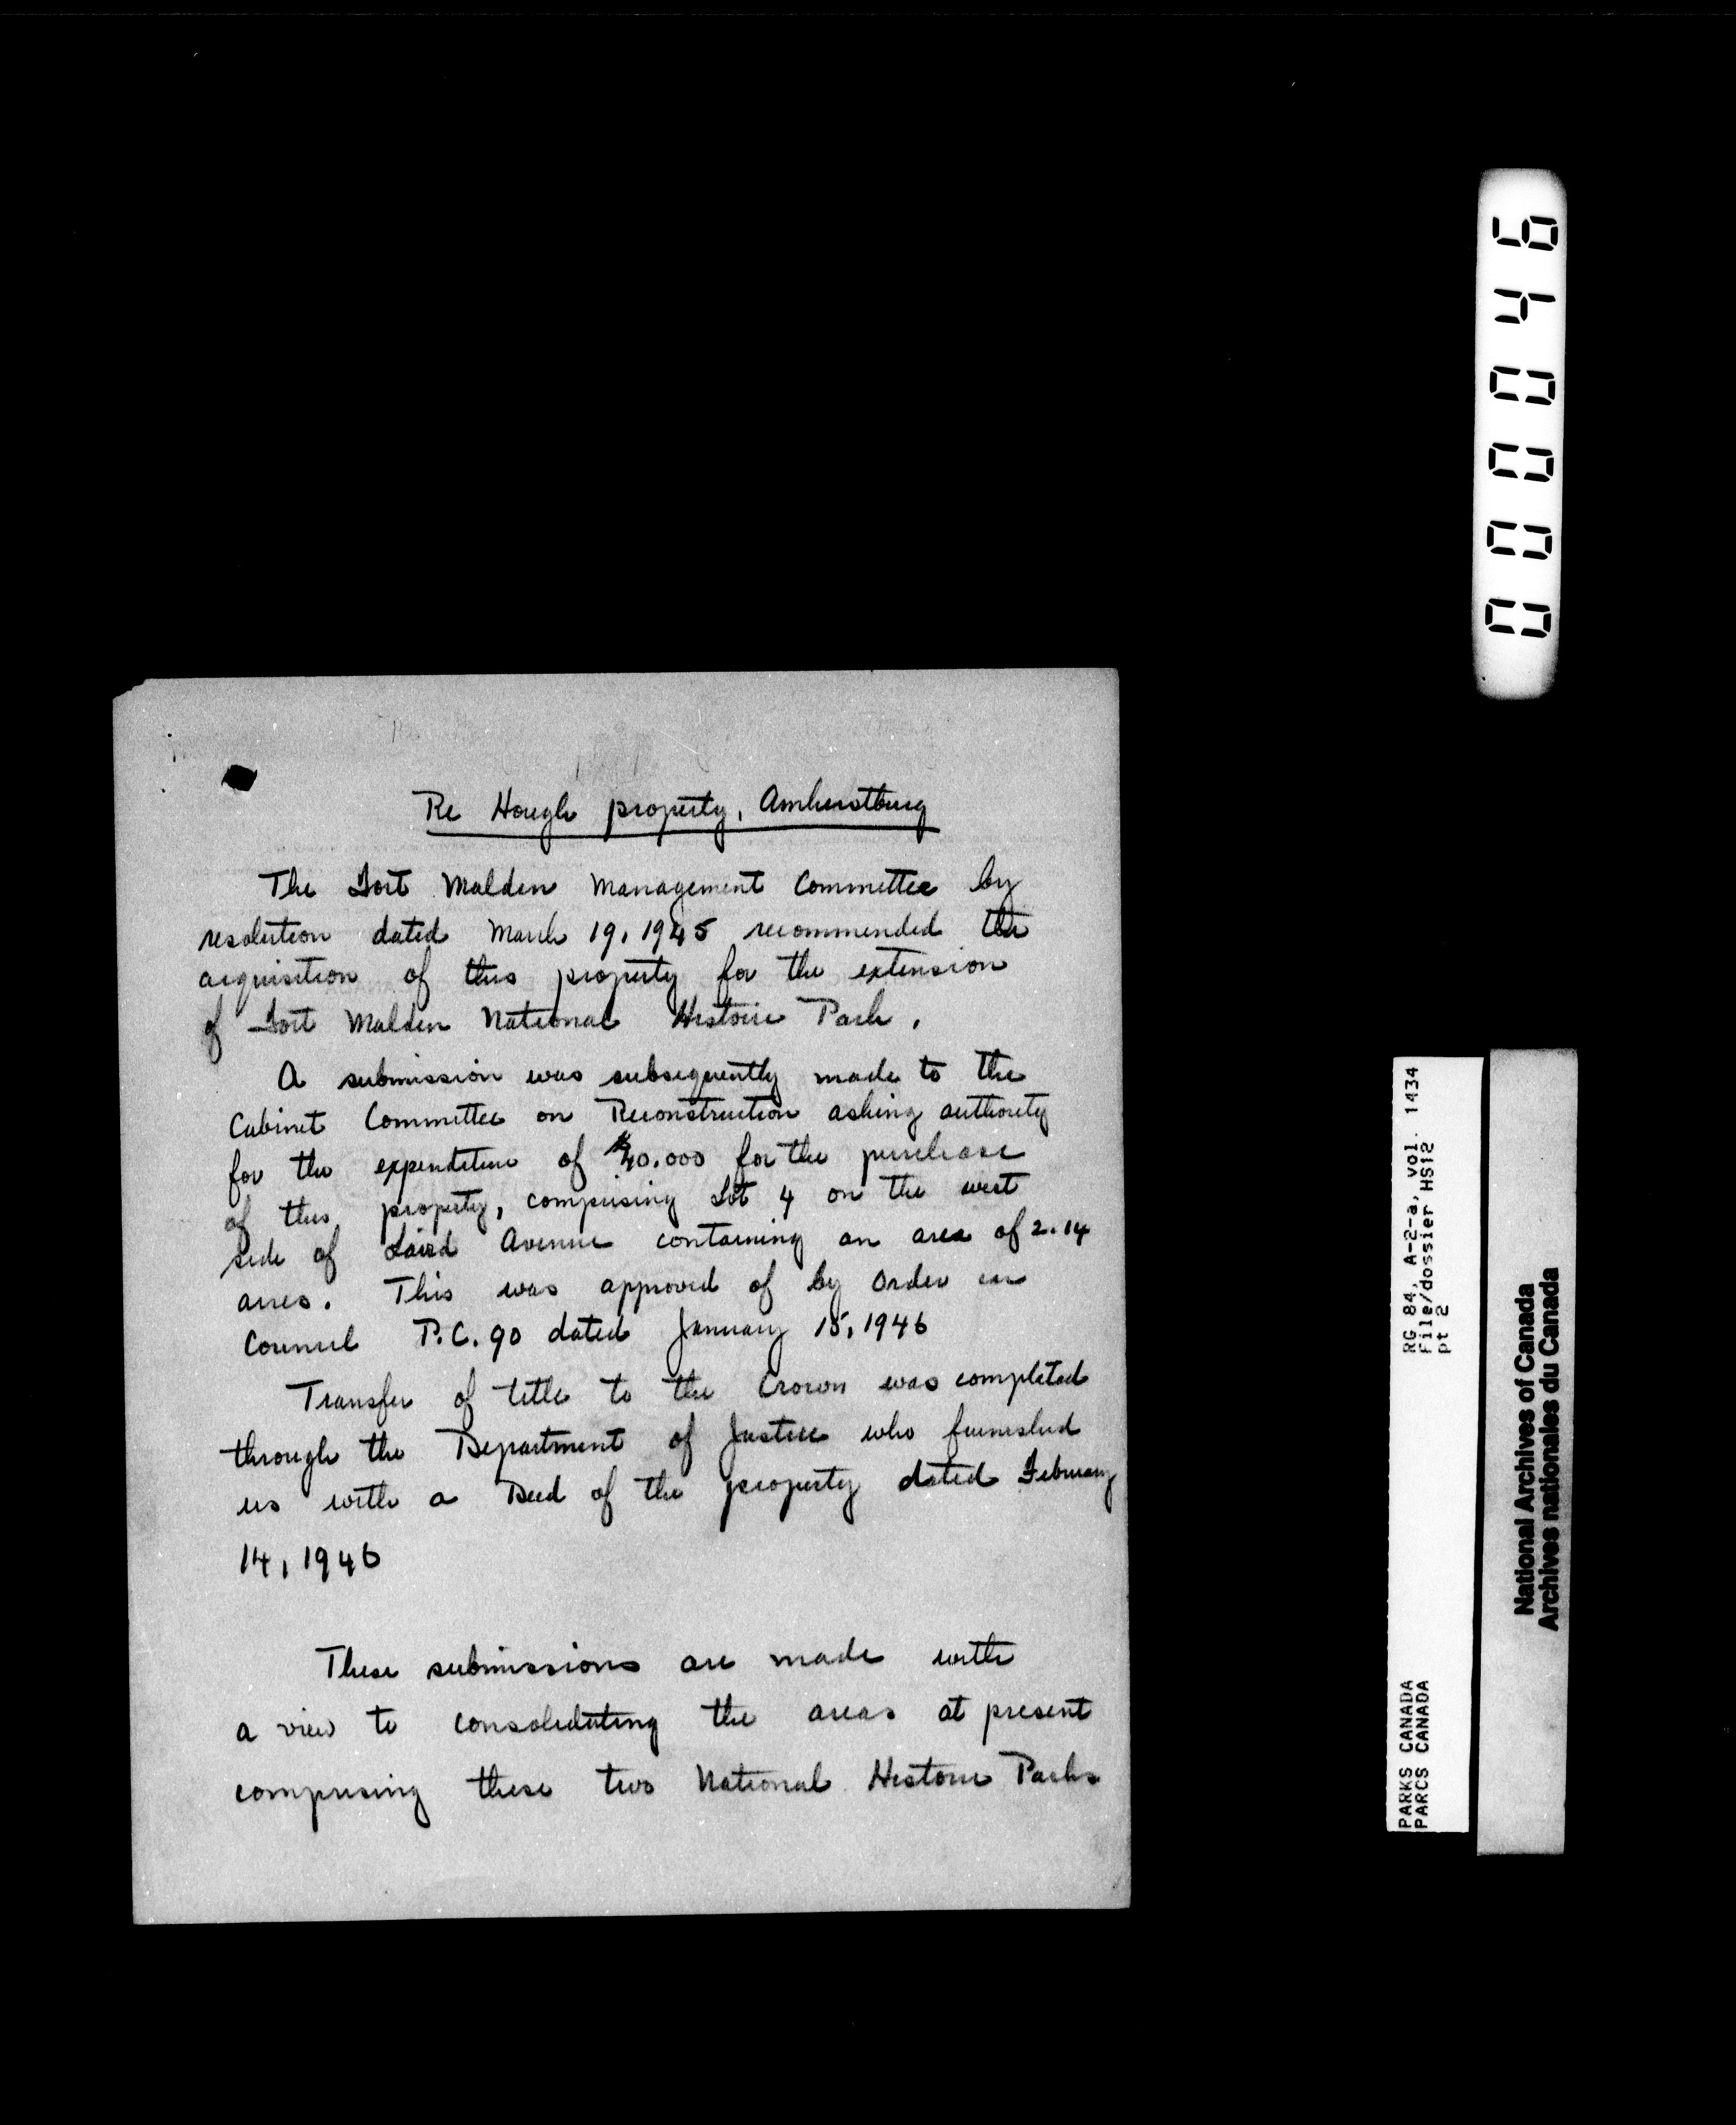 Re Hough property, Amherstburg
The Fort Malden Management Committee by
resolution dated March 19, 1945 recommended the
acquisition of this property for the extension
of Fort Malden National Historic Park.
A submission was subsequently made to the
Cabinet Committee on Reconstruction asking authority
for the expenditure of $40,000 for the purchase
of this property, comprising Lot 4 on the west
side of Laird Avenue containing an area of 2.14
acres. This was approved of by Order in
Council P.C. 90 dated January 15, 1946
Transfer of title to the Crown was completed
through the Department of Justice who furnished
us with a Deed of the property dated February
14, 1946
These submissions are made with
a view to consolidating the areas at present
comprising these two National Historic Parks
000046
RG 84, A-2-a, vol. 1434
File/dossier HS12
pt 2
PARKS CANADA
PARCS CANADA
National Archives of Canada
Archives nationales du Canada